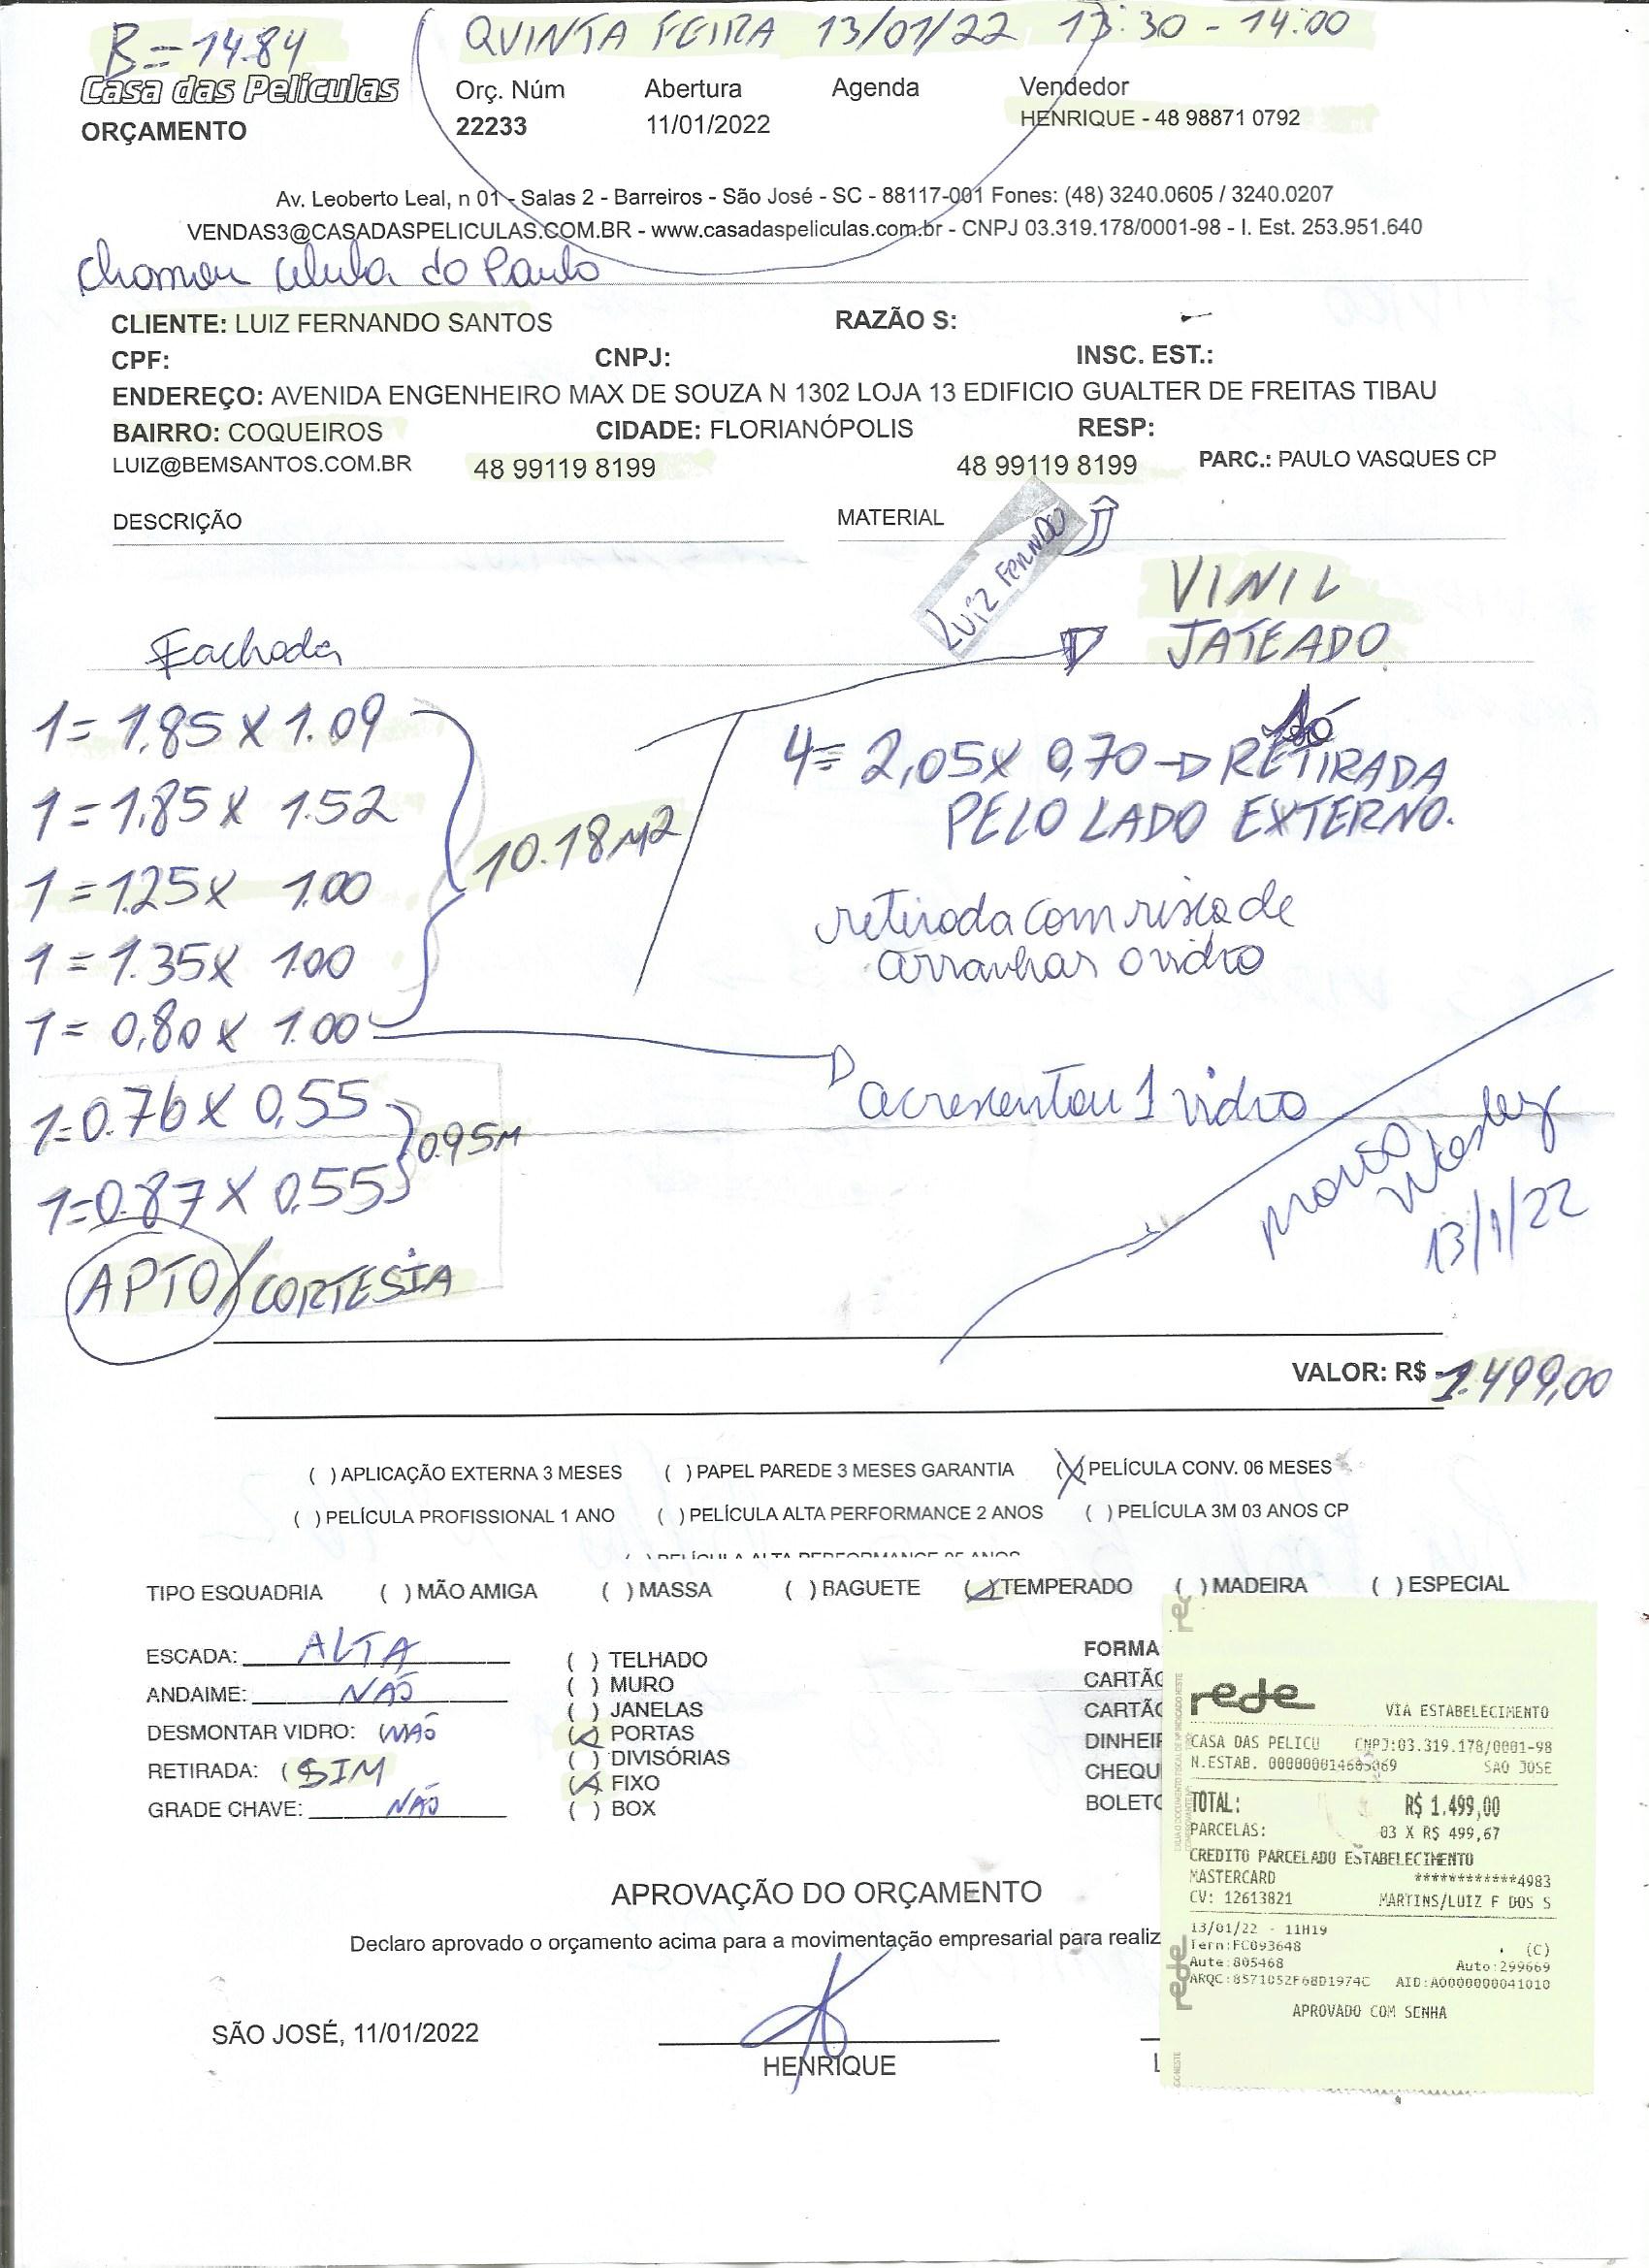 B=1484
QUINTA FEIRA 13/01/22 13:30 - 14:00
Casa das Películas
ORÇAMENTO
Orç. Núm Abertura Agenda Vendedor
22233 11/01/2022 HENRIQUE - 48 98871 0792
Av. Leoberto Leal, n 01 - Salas 2 - Barreiros - São José - SC - 88117-001 Fones: (48) 3240.0605 / 3240.0207
VENDAS3@CASADASPELICULAS.COM.BR - www.casadaspeliculas.com.br - CNPJ 03.319.178/0001-98 - I. Est. 253.951.640
do Paulo
CLIENTE: LUIZ FERNANDO SANTOS RAZÃO S:
CPF: CNPJ: INSC. EST.:
ENDEREÇO: AVENIDA ENGENHEIRO MAX DE SOUZA N 1302 LOJA 13 EDIFICIO GUALTER DE FREITAS TIBAU
BAIRRO: COQUEIROS CIDADE: FLORIANÓPOLIS RESP:
LUIZ@BEMSANTOS.COM.BR 48 99119 8199 48 99119 8199 PARC.: PAULO VASQUES CP
DESCRIÇÃO MATERIAL
LUIZ FERNNDO
VINIL
JATEADO
Fachada
1=1.85 X 1.09
1=1.85 X 1.52
1=1.25 X 1.00
1=1.35X 1.00
1= 0,80 X 1.00
10.18 M2
4= 2,05X 0,70 RETIRADA
Só
PELO LADO EXTERNO.
retirada com risco de
arranhas o vidro
acrescentou 1 vidro
1=0.76 X 0,55
1=0.87 X 0,55
0.95M
APTO/CORTESIA
Wesley
13/1/22
VALOR: R$ 1.499,00
( ) APLICAÇÃO EXTERNA 3 MESES ( ) PAPEL PAREDE 3 MESES GARANTIA (X) PELÍCULA CONV. 06 MESES
( ) PELÍCULA PROFISSIONAL 1 ANO ( ) PELÍCULA ALTA PERFORMANCE 2 ANOS ( ) PELÍCULA 3M 03 ANOS CP
( ) PELÍCULA ALTA PERFORMANCE 05 ANOS
TIPO ESQUADRIA ( ) MÃO AMIGA ( ) MASSA ( ) BAGUETE ( ) TEMPERADO ( ) MADEIRA ( ) ESPECIAL
ESCADA: ALTA
ANDAIME: NÃO
DESMONTAR VIDRO: (NÃO
RETIRADA: ( SIM
GRADE CHAVE: NÃO
( ) TELHADO
( ) MURO
( ) JANELAS
( ) PORTAS
( ) DIVISÓRIAS
( ) FIXO
( ) BOX
FORMA
CARTÃO
CARTÃO
DINHEIR
CHEQU
BOLETO
rede
VIA ESTABELECIMENTO
CASA DAS PELICU CNPJ:03.319.178/0001-98
N.ESTAB. 000000014685069 SAO JOSE
TOTAL: R$ 1.499,00
PARCELAS: 03 X R$ 499,67
CREDITO PARCELADO ESTABELECIMENTO
MASTERCARD ************4983
CV: 12613821 MARTINS/LUIZ F DOS S
13/01/22 - 11H19
Term:FC093648 (C)
Aute:805468 Auto:299669
ARQC:8571052F68D1974C AID:A0000000041010
APROVADO COM SENHA
rede
APROVAÇÃO DO ORÇAMENTO
Declaro aprovado o orçamento acima para a movimentação empresarial para realiz
SÃO JOSÉ, 11/01/2022
HENRIQUE